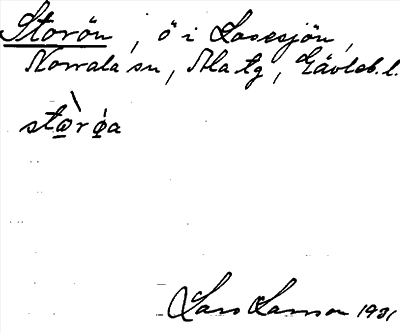 Storön, ö i Losesjön,
Norrala sn, Ala tg, Gävleb. l.
Lars Larsson 1931